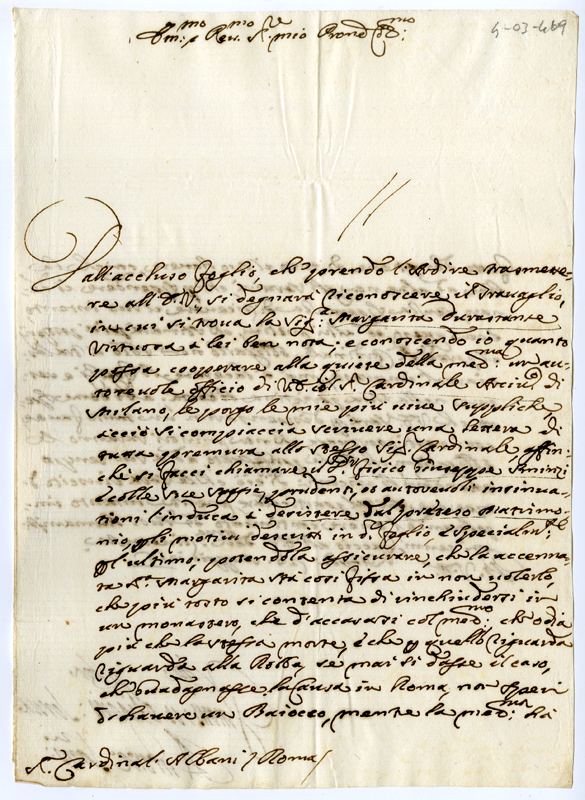 Em:mo e Rev:mo Sr.e mio Pron Col:mo
5-03-469
Dall'accluso foglio, che prendo l'ardire trasmette-
re all'E.V., si degnarà riconoscere il travaglio,
in cui si trova la Sig.ra Margarita Durastante
Virtuosa à lei ben nota; e conoscendo io quanto
possa cooperare alla quiete della med:ma un au-
torevole officio di V.E. col Sr. Cardinale Arciv: di
Milano, le porgo le mie più vive suppliche,
acciò si compiaccia scrivere una lettera di
tutta premura allo stesso Sig.r Cardinale, affin-
chè si facci chiamare il Fisico Giuseppe
e colle sue saggie, prudenti, et autorevoli insinua-
tioni l'induca à desistere dal preteso Matrimo-
nio, per li motivi descritti in d.o foglio, e specialm.te
per l'ultimo; potendola assicurare, che la accenna-
ta Sra. Margarita stà così fissa in non volerlo,
che più tosto si contenta di rinchiudersi in
un monastero, che d'accasarsi col med:mo che odia
più che la stessa morte, e che per quello riguarda
riguarda alla Robba, se mai si dasse il caso,
che guadagnasse la causa in Roma non speri
d'havere un Baiocco, mentre la med:ma hà
Sr. Cardinal: Albani / Roma /